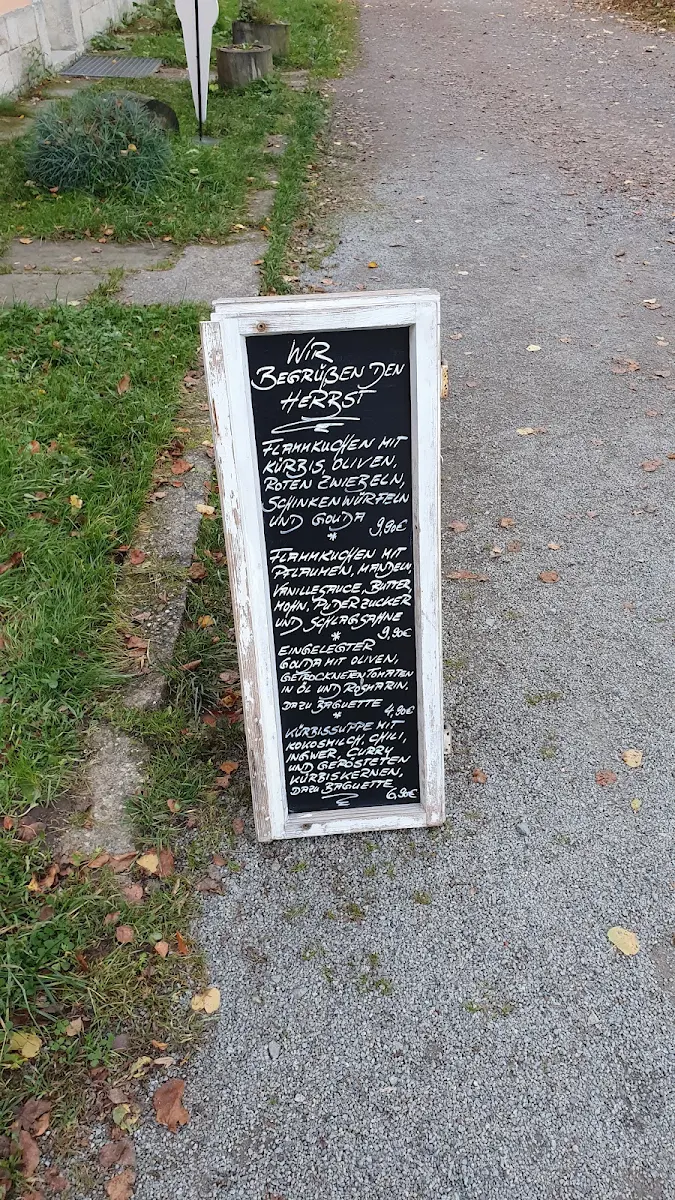 WIR
BEGRÜßEN DEN
HERBST
FLAMMKUCHEN MIT
KÜRBIS, OLIVEN,
ROTEN ZWIEBELN,
SCHINKENWÜRFELN
UND GOUDA 9,90€
*
FLAMMKUCHEN MIT
PFLAUMEN, MANDELN,
VANILLESAUCE, BUTTER,
MOHN, PUDERZUCKER
UND SCHLAGSAHNE
* 9,90€
EINGELEGTER
GOUDA MIT OLIVEN,
GETROCKNETEN TOMATEN
IN ÖL UND ROSMARIN,
DAZU BAGUETTE 4,90€
*
KÜRBISSUPPE MIT
KOKOSMILCH, CHILI,
INGWER, CURRY
UND GERÖSTETEN
KÜRBISKERNEN,
DAZU BAGUETTE
6,90€